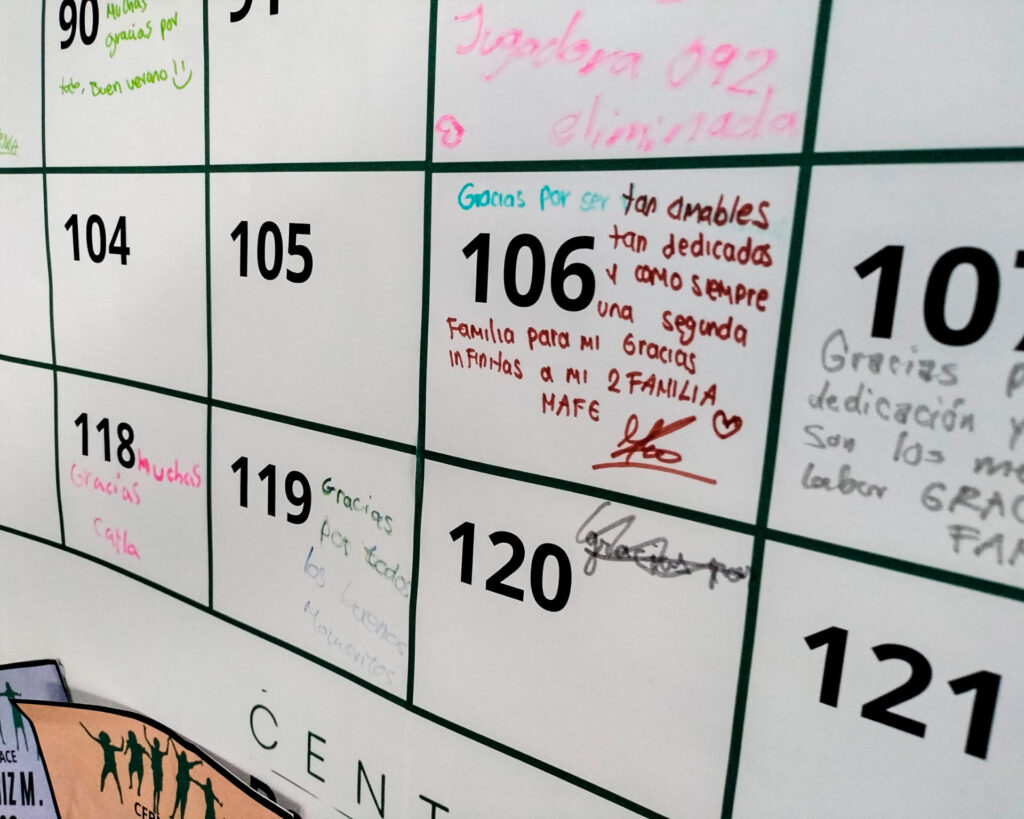 90 Muchas
gracias por
todo, Buen verano !!
91
Jugadora 092
eliminada
104
105
106
Gracias por ser tan amables
tan dedicados
y como siempre
una segunda
Familia para mi Gracias
infinitas a mi 2 FAMILIA
MAFE
107
Gracias
dedicación y
Son los
labor
118 Muchas
Gracias
Catla
119 Gracias
por todos
los buenos
Momentos
120 gracias por
121
CENT
IZ M.